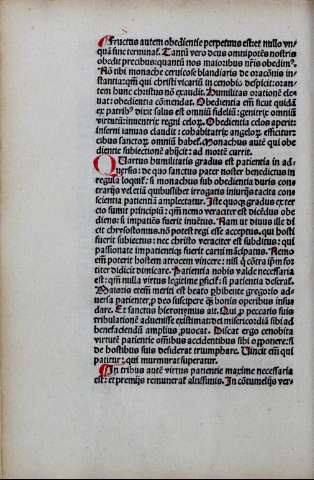 Fructus autem obedientie perpetuus est: et nullo vn-
quā fine terminat᷑. Tantū vero deus omnipotēs nostris
obedit precibus: quantū nos maioribus nr̄is obedim⁹.
Nō tibi monache ceruicose blandiaris de oracōnis in-
stantia: qm̄ qui christi vicariū in cenobio despicit: oran-
tem hunc christus nō exaudit. Humilitas orationē ele-
uat: obedientia cōmendat. Obedientia em̄ sicut quidā
ex patrib⁹ dixit salus est omniū fidelium: genitrix omniū
virtutū: inuentrix regni celoꝝ. Obedientia celos aperit:
inferni ianuas claudit: cohabitatrix angeloꝝ efficitur:
cibus sanctoꝝ omniū habet᷑. Monachus autē qui obe-
dientie subiectionē abijcit: ad mortē currit.
Quartus humilitatis gradus est patientia in ad-
uersis: de quo sanctus pater noster benedictus in
regula loquit᷑: si monachus sub obedientia duris cons
trarijs vel etiā quibuslibet irrogatis iniurijs tacita con-
scientia patientiā amplectatur. Iste quoqꝫ gradus ex ter
cio sumit principiū: qm̄ nemo veraciter est dicēdus obe
diens: si impatiēs fuerit inuētus. Nam ut diuus ille di
cit chrysostomus. nō potest regi esse acceptus. qui hosti
fuerit subiectus: nec christo veraciter est subditus: qui
passionate impatientie fuerit carni mācipatus. Nemo
em̄ poterit hostem atrocem vincere: nisi q̄ cōtra ip̄m for
titer didicit dimicare. Patientia nobis valde necessaria
est: qm̄ nulla virtus legitime ꝑficit᷑: si patientia deserat᷑.
Maioris etem̄ meriti est beato ꝓhibente gregorio ad-
uersa patienter, ꝓ deo suscipere q̄ꝫ bonis operibus insu
dare. Et sanctus hieronymus ait. Qui ꝓ peccatis suis
tribulationē aduenisse existimat: dei misericordiā sibi ad
benefaciendū amplius ꝓuocat. Discat ergo cenobita
virtutē patientie om̄ibus accidentibus sibi opponere: si
de hostibus suis desiderat triumphare. Vincit em̄ qui
patitur: qui murmurat superatur.
In tribus autē virtus patientie maxime necessaria
est: et premijs remunerat᷑ altissimis. In cōtumelijs ver-